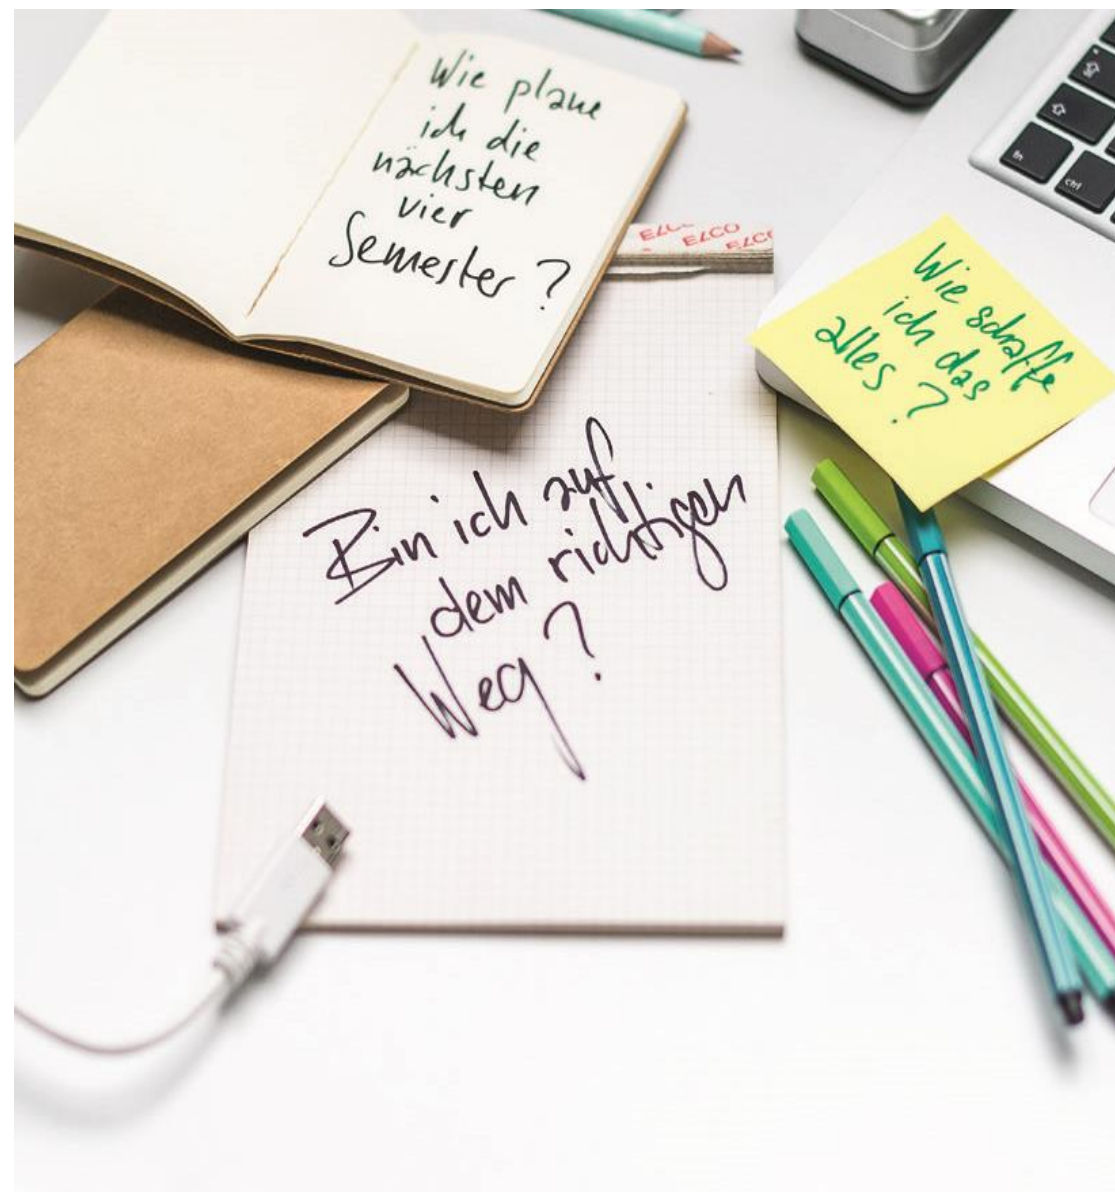 Wie plane
ich die
nächsten
vier
Semester ?
ELCO
ELCO
ELCO
Wie schaffe
ich das
alles ?
Bin ich auf
dem richtigen
Weg ?
fn
ctrl